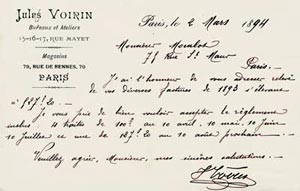 Jules VOIRIN
Bureaux et Ateliers
15-16-17, RUE MAYET
Magasins
79, RUE DE RENNES, 79
PARIS
Paris, le 2 Mars 1894
Monsieur
71 Rue St Maur
Paris.
J'ai l'honneur de vous adresser relevé
de vos diverses factures de 1893 s'élevant
à
Je vous prie de bien vouloir accepter le règlement
inclus 4 traites de 100f au 10 avril, 10 mai, 10 Juin
10 Juillet et une de au 10 août prochain.
Veuillez agréer, Monsieur, mes sincères salutations.